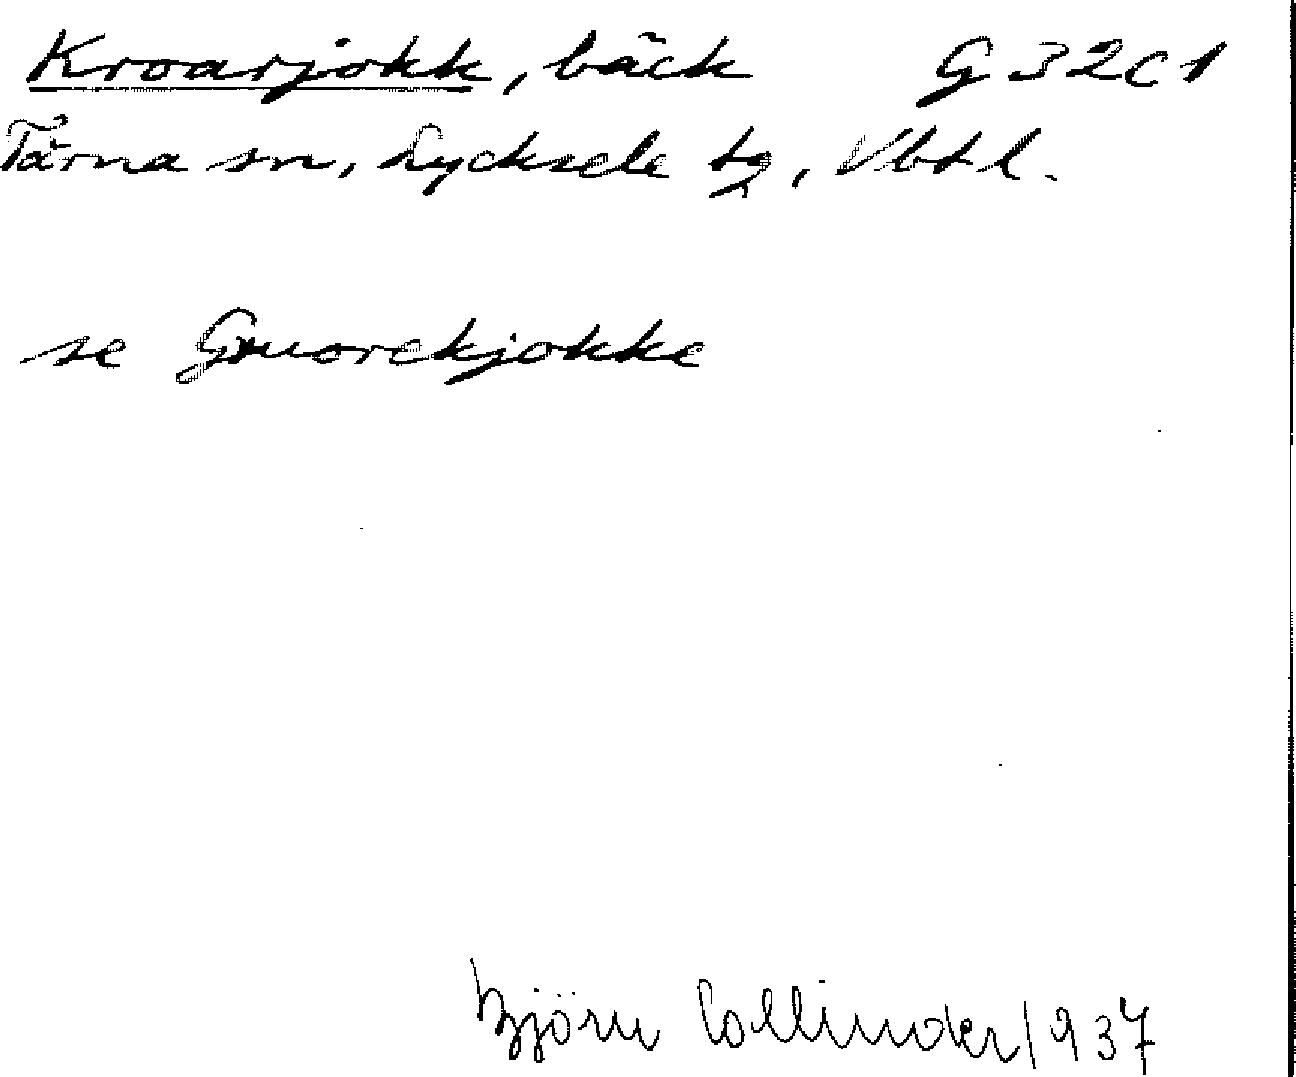 Kroarjokk, bäck G 32c1
Tärna sn, Lycksele tg, Vbtl.
se Gruorekjokke
Björn Collinder 1937